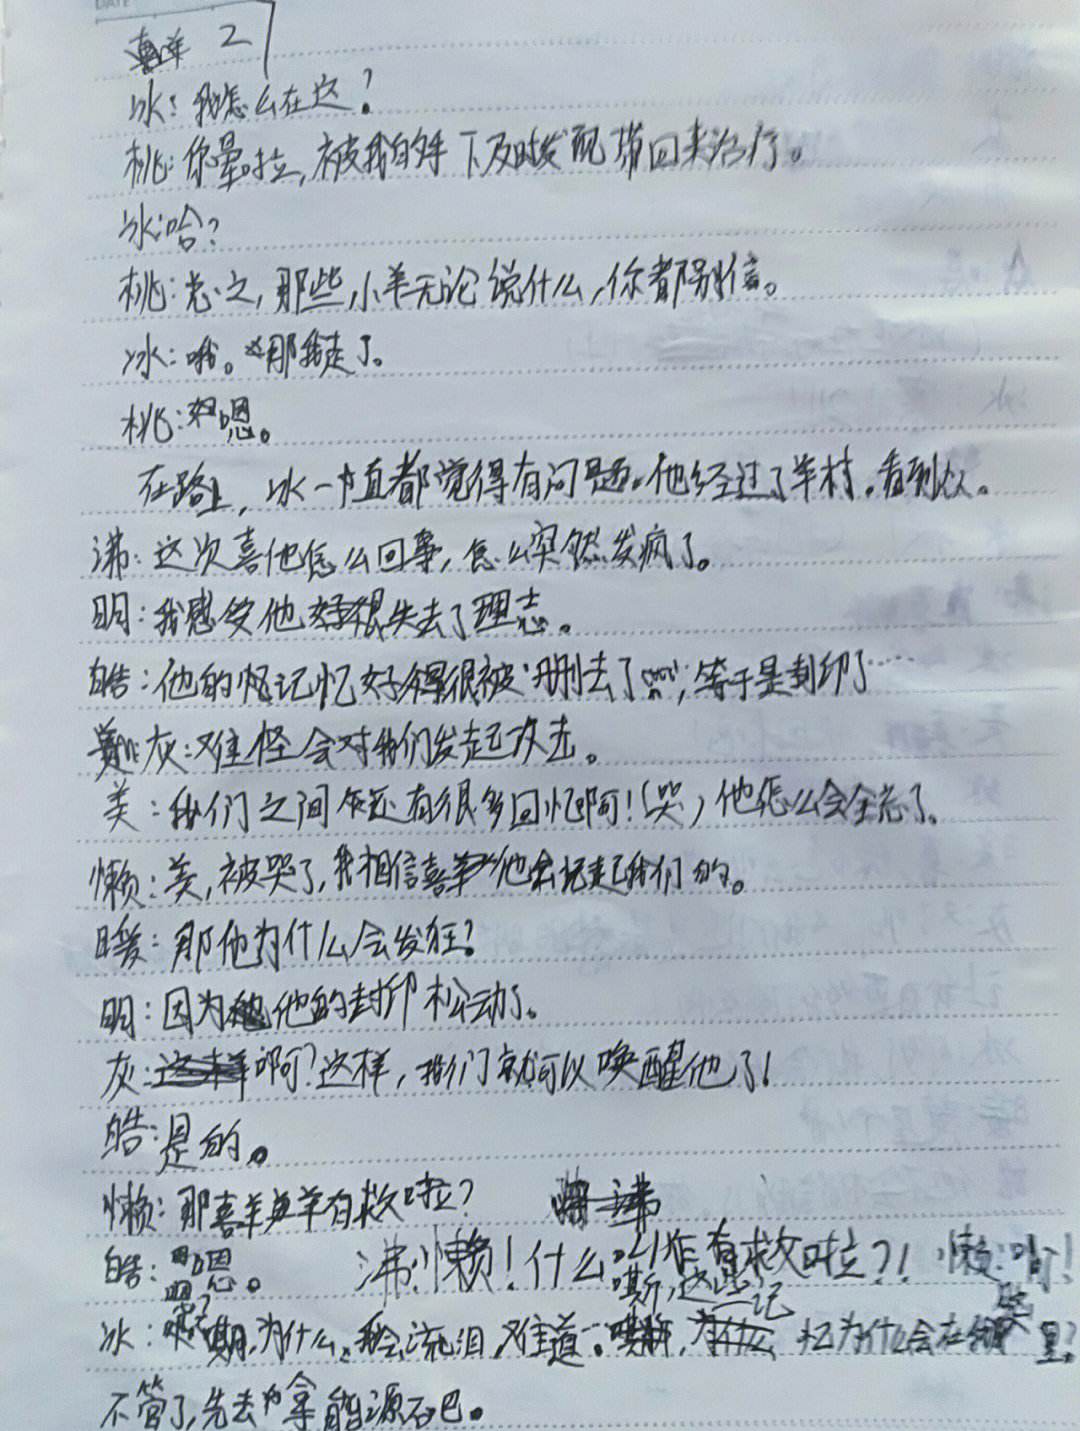 DATE
喜羊 2
冰：我怎么在这？
桃：你晕啦，被我的手下及时发配带回来治疗。
冰：哈？
桃：总之，那些小羊无论说什么，你都别信。
冰：哦。那我走了。
桃：嗯。
在路上，冰一直都觉得有问题。他经过了羊村，看到众。
沸：这次喜他怎么回事，怎么突然发疯了。
明：我感受他好很失去了理志。
皓：他的记忆好得很被删去了，等于是封印了……
灰：难怪会对我们发起攻击。
美：我们之间还有很多回忆啊！（哭）他怎么会全忘了。
懒：美，被哭了，我相信喜羊他会记起我们的。
暖：那他为什么会发狂？
明：因为他的封印松动了。
灰：啊？这样，我们就可以唤醒他了！
皓：是的。
懒：那喜羊羊有救啦？
皓：嗯。 沸：懒！什么叫有救啦？！ 懒：哼！
冰：为什么，我会流泪，难道…嘶，这些记忆为什么会在里？
不管了，先去拿能源石吧。